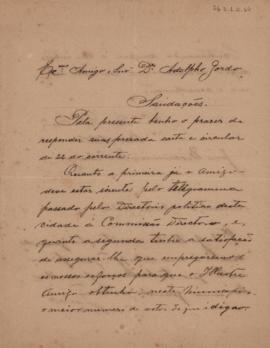 Exmo Amigo e Snr. Dr. Adolpho Gordo.
Saudações.
Pela presente tenho o prazer de
responder sua presada carta e circular
de 22 do corrente.
Quanto a primeira já o Amigo
deve estar sciente pelo telegramma
passado pelo Directorio politico desta
cidade á Commissão Directora, e,
quanto a segunda tenho a satisfação
de assegurar-lhe que empregaremos
os nossos esforços para que o Illustre
Amigo obtenha, neste Municipio,
o maior numero de votos de que é digno.